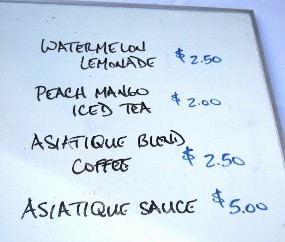 WATERMELON
LEMONADE $2.50
PEACH MANGO
ICED TEA $2.00
ASIATIQUE BLEND
COFFEE $2.50
ASIATIQUE SAUCE $5.00